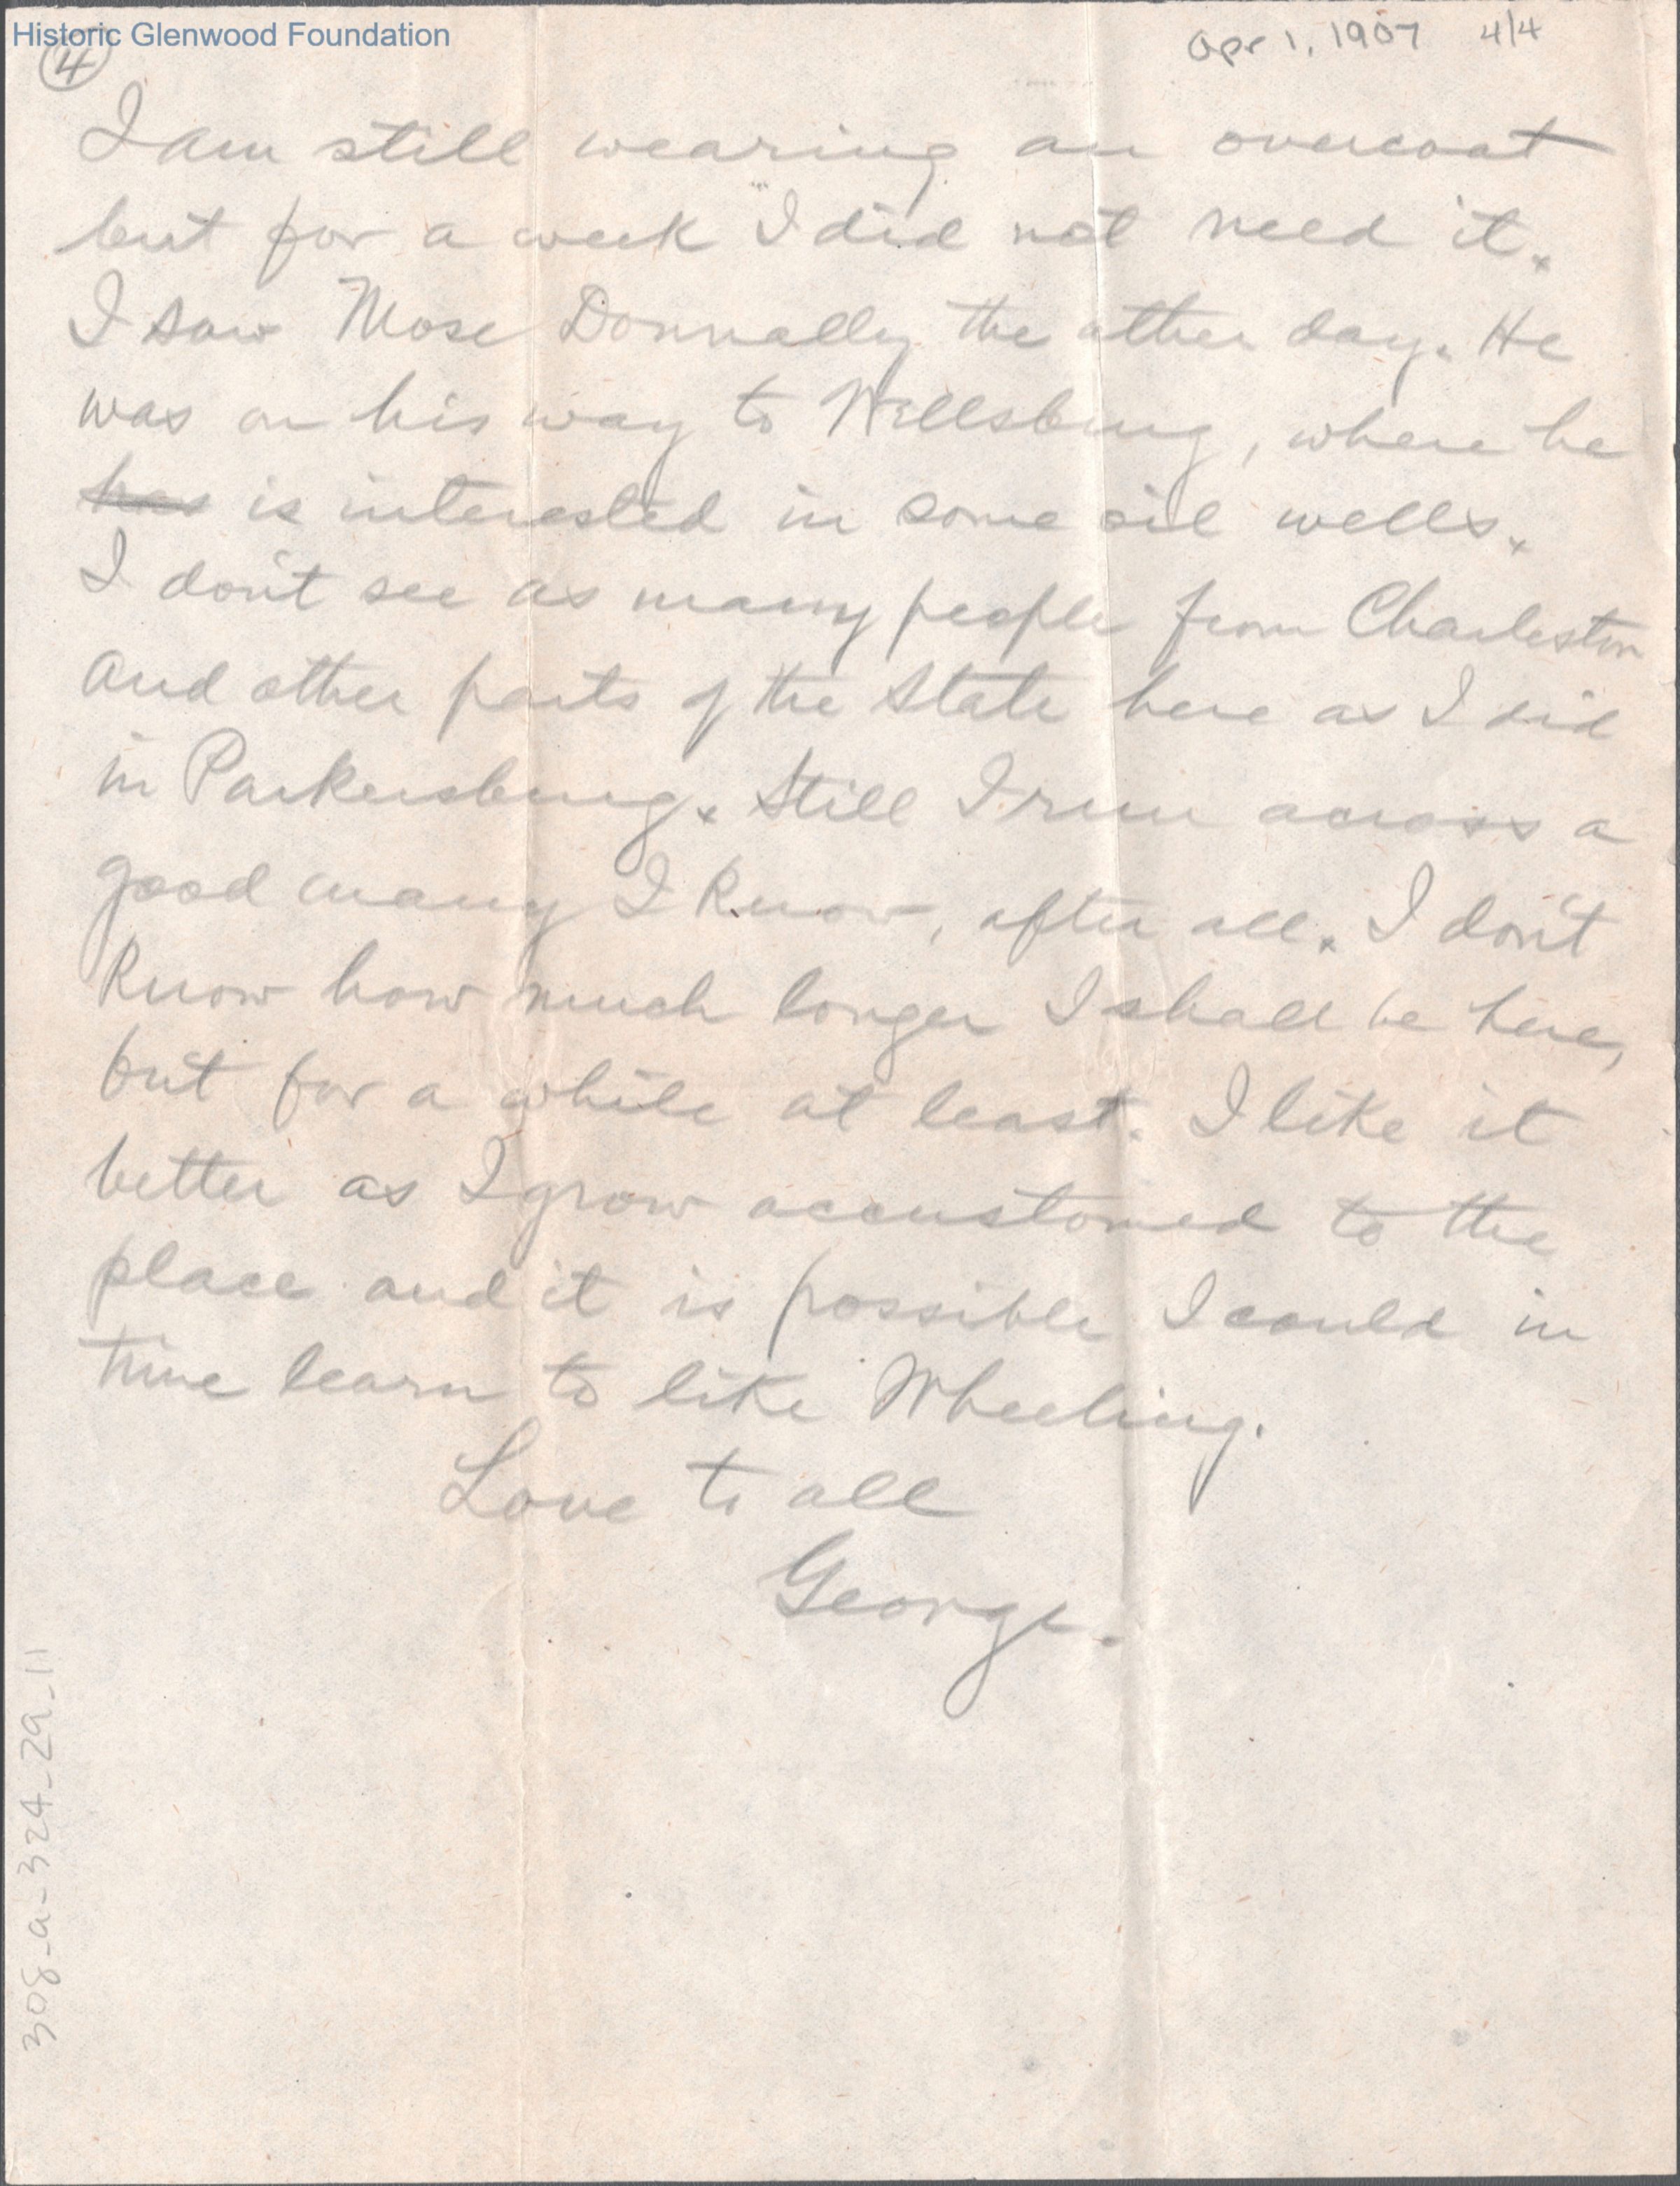 Historic Glenwood Foundation
Apr 1, 1907 4/4
4
I am still wearing an overcoat
but for a week I did not need it.
I saw Mose Donnally the other day. He
was on his way to Wellsburg, where he
has is interested in some oil wells.
I don't see as many people from Charleston
and other parts of the State here as I did
in Parkersburg. Still I run across a
good many I know, after all. I don't
know how much longer I shall be here,
but for a while at least. I like it
better as I grow accustomed to the
place and it is possible I could in
time learn to like Wheeling.
Love to all
George.
308-a-324-29-11